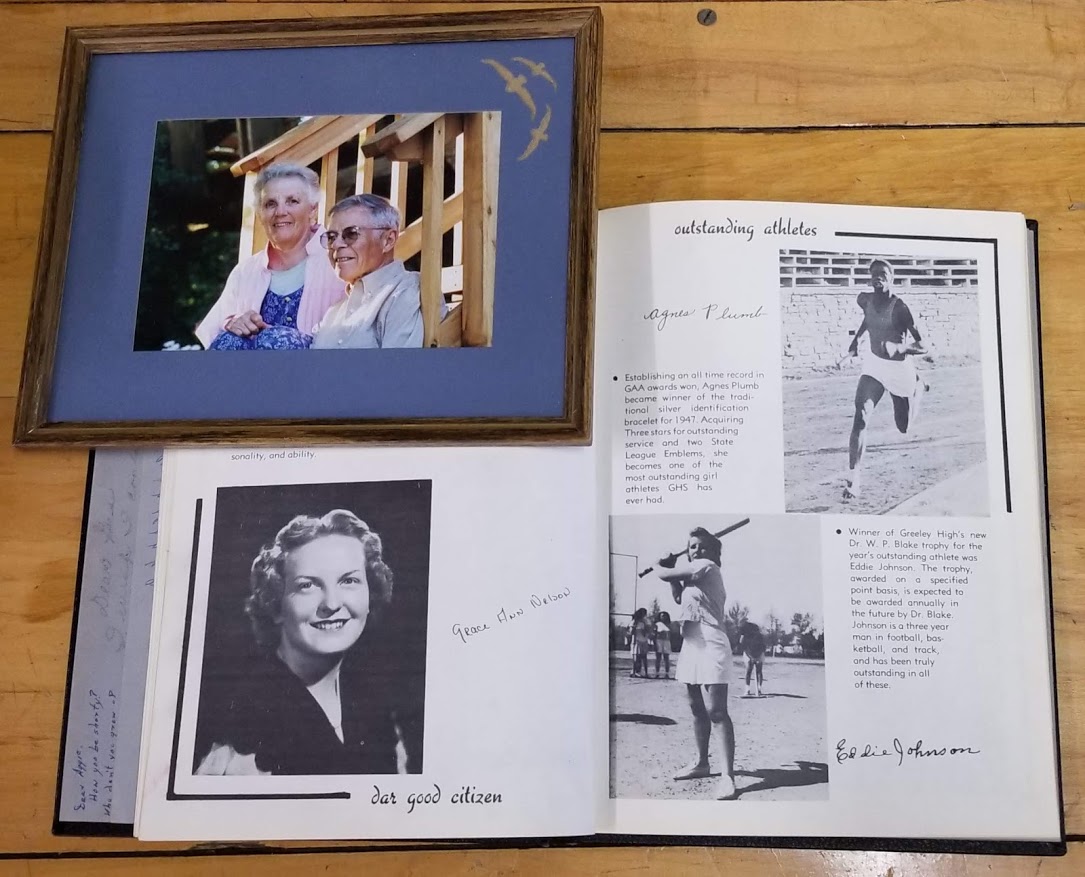 sonality, and ability.
Grace Ann Nelson
dar good citizen
Dear Aggie,
How you be shorty?
Why don't you grow up
outstanding athletes
Agnes Plumb
• Establishing an all time record in
GAA awards won, Agnes Plumb
became winner of the tradi-
tional silver identification
bracelet for 1947. Acquiring
Three stars for outstanding
service and two State
League Emblems, she
becomes one of the
most outstanding girl
athletes GHS has
ever had.
• Winner of Greeley High's new
Dr. W. P. Blake trophy for the
year's outstanding athlete was
Eddie Johnson. The trophy,
awarded on a specified
point basis, is expected to
be awarded annually in
the future by Dr. Blake.
Johnson is a three year
man in football, bas-
ketball, and track,
and has been truly
outstanding in all
of these.
Eddie Johnson